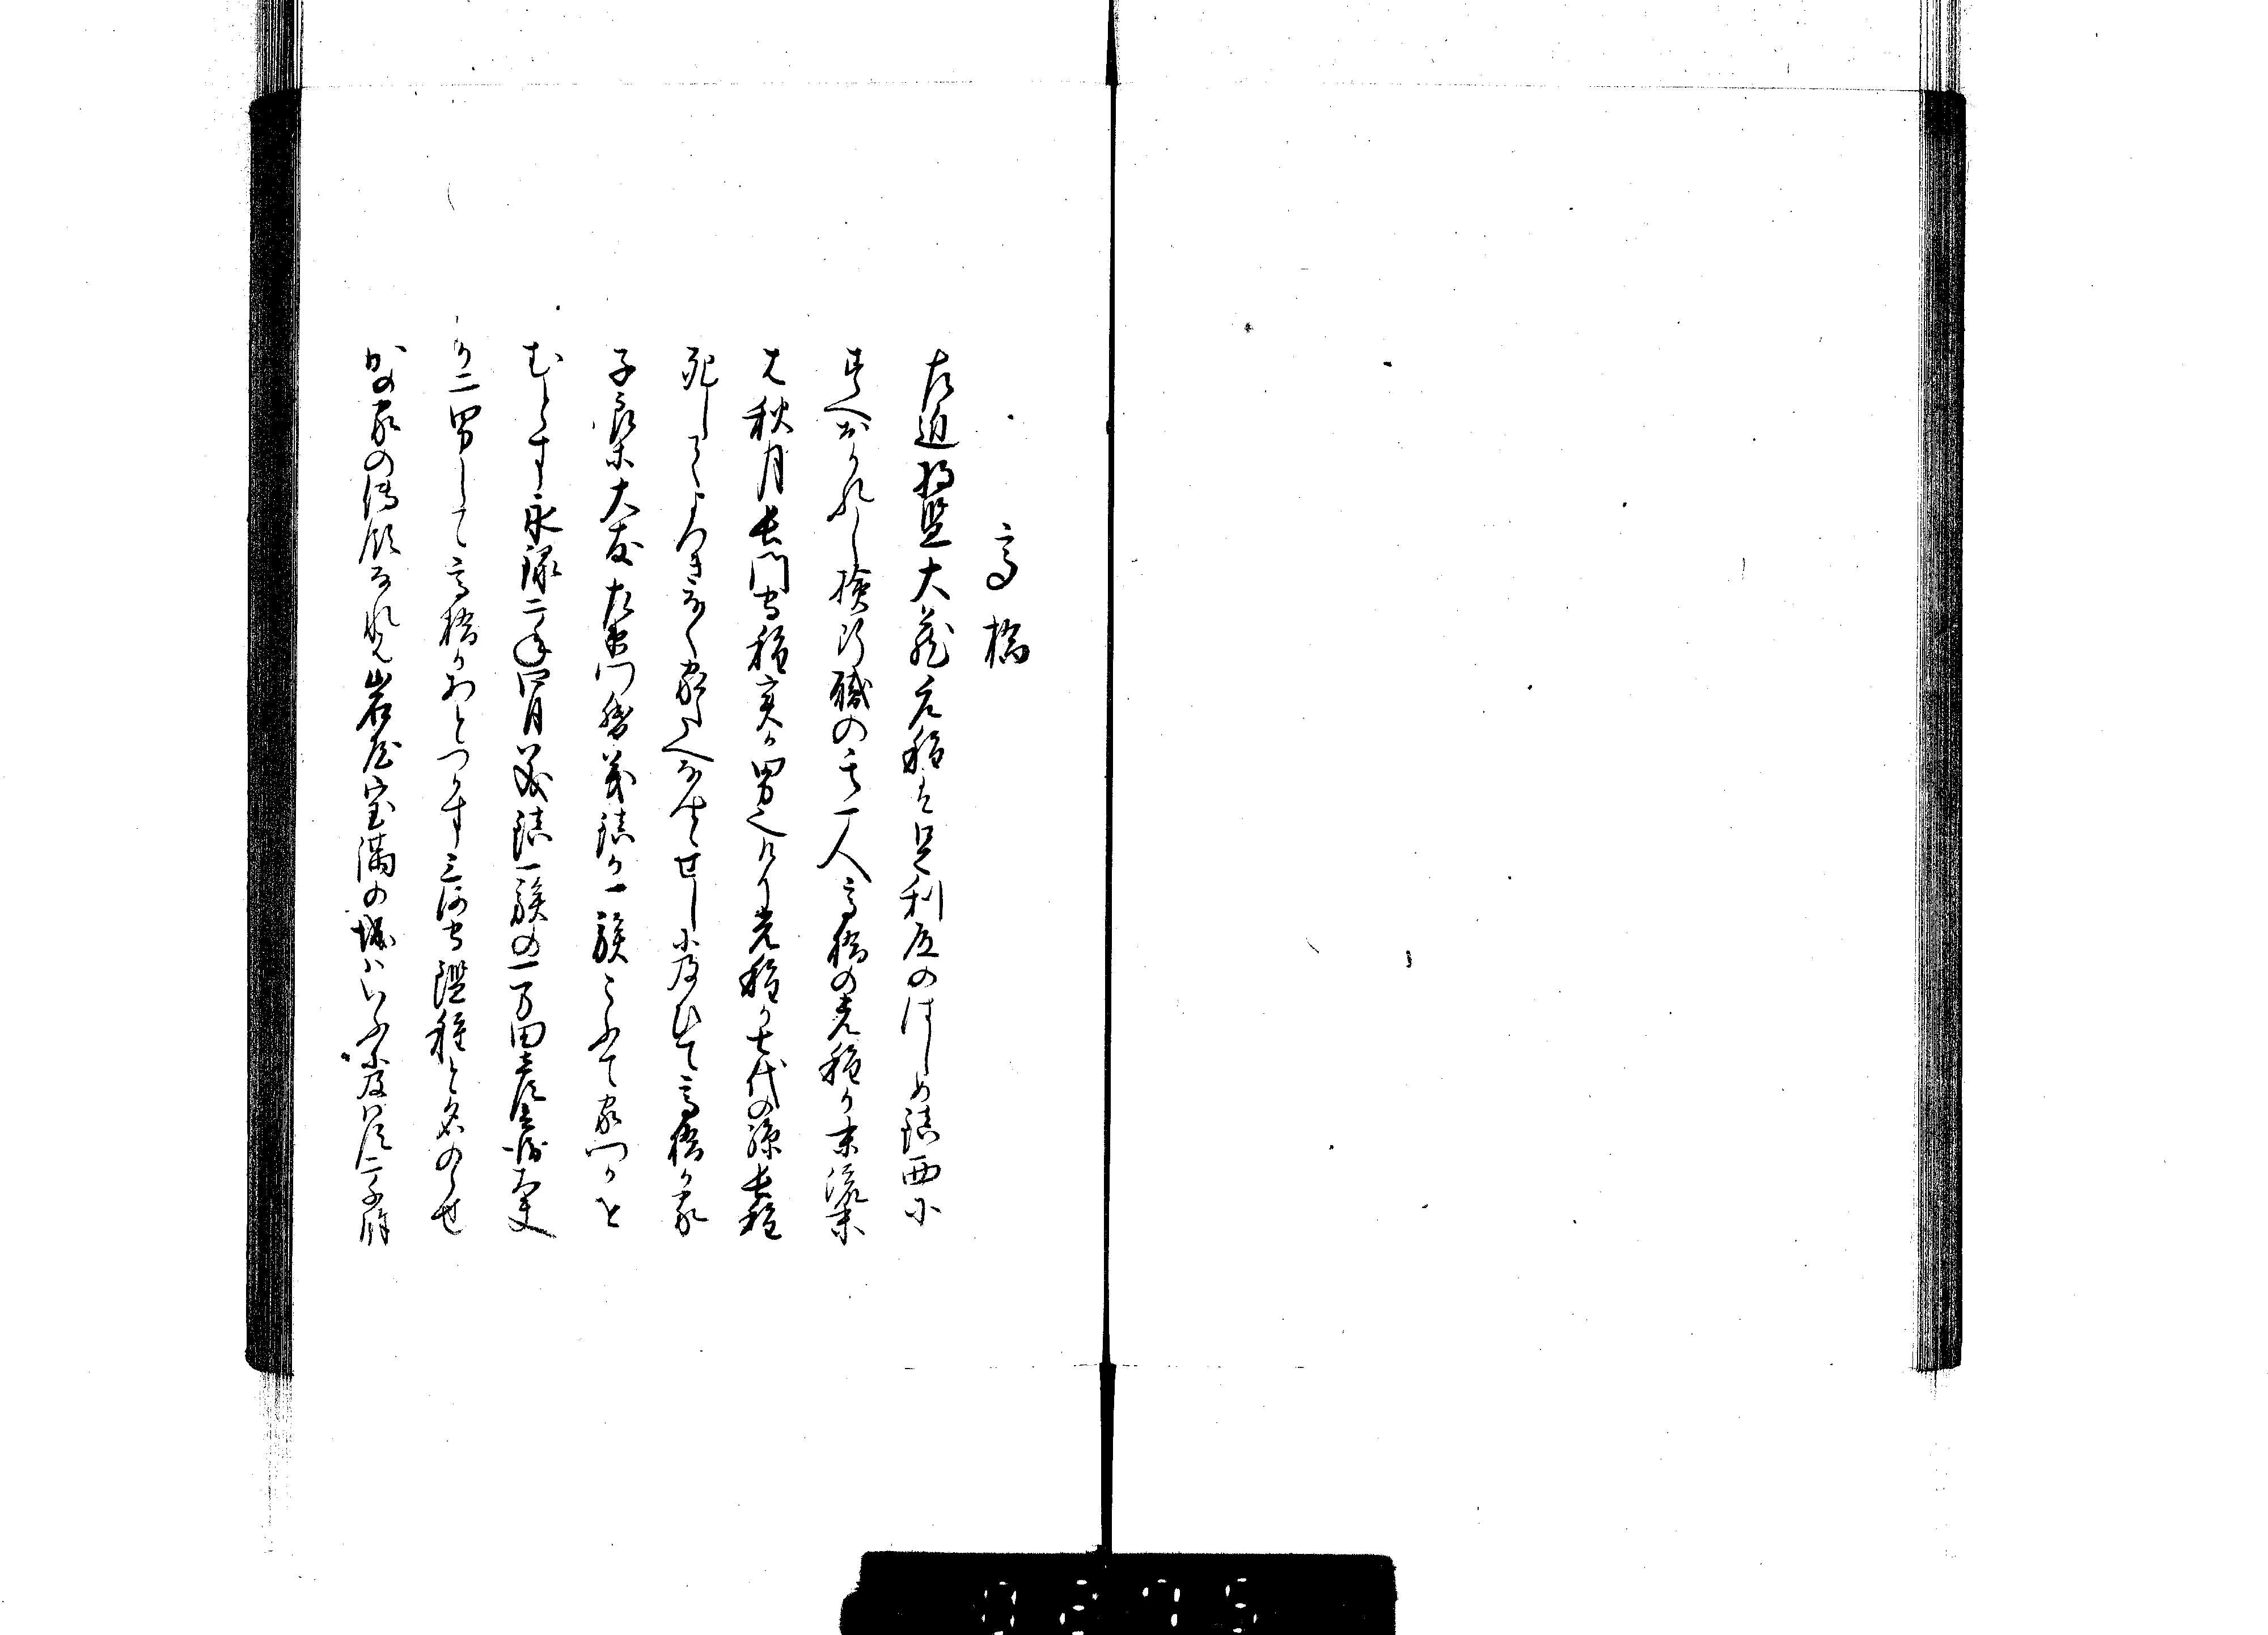 高橋
左近将監大蔵元種は足利殿のはしめ鎮西に
すへおかれし検断職の其一人高橋の光種か末流実
は秋月長門守種実か男也けり光種か七代の孫長種
死してよつきなく家たへなんとせしに及ひて高橋か家
子良朱大友左衛門督義鎮か一族こふて家つかせ
むとす永禄二年四月義鎮一族の一万田
か二男して高橋かあとつかす三河守鑑種と名のらせ
かの家の侍所なれは岩屋宝満の城はいふに及はす二